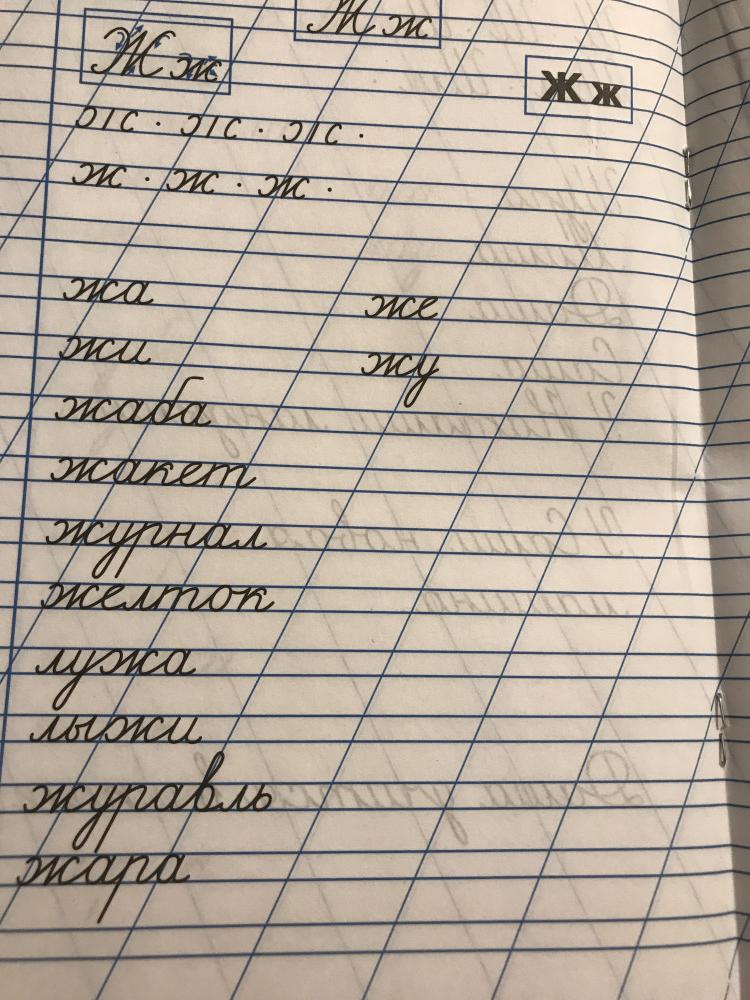 Ж ж
Ж ж
Ж ж
ж · ж · ж ·
жа же
жи жу
жаба
жакет
журнал
желток
лужа
лыжи
журавль
жара